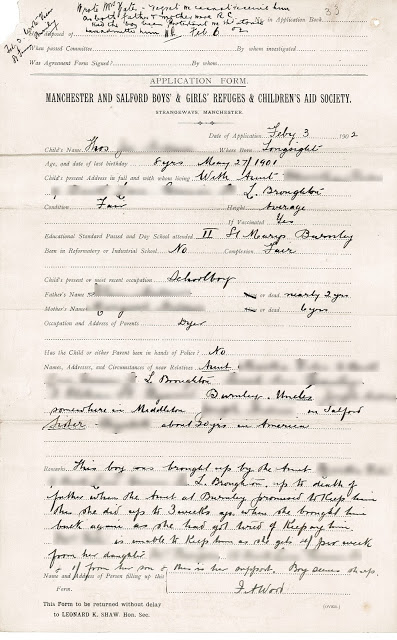 33
Wrote Mrs Yates - regret we cannot receive him
as both father & mother were R.C.
Had the boy been Protestant we should
in Application Book
disposed of
Feb 6. 02
When passed Committee
By whom investigated
Was Agreement Form Signed?
By whom
APPLICATION FORM.
MANCHESTER AND SALFORD BOYS' & GIRLS' REFUGES & CHILDREN'S AID SOCIETY.
STRANGEWAYS, MANCHESTER.
Date of Application Feby 3 1902
Child's Name Thos Where Born Longsight
Age, and date of last birthday 8 yrs May 27/1901
Child's present Address in full and with whom living With Aunt
L. Broughton
Condition Fair Height Average
If Vaccinated Yes
Educational Standard Passed and Day School attended II St Marys Burnley
Been in Reformatory or Industrial School No Complexion Fair
Child's present or most recent occupation Schoolboy
Father's Name or dead nearly 2 yrs
Mother's Name or dead 6 yrs
Occupation and Address of Parents Dyer
Has the Child or either Parent been in hands of Police? No
Names, Addresses, and Circumstances of near Relatives Aunt
L Broughton
Burnley - Uncles
somewhere in Middleton or Salford
Sister - about 20 yrs in America
Remarks This boy was brought up by the Aunt
L. Broughton, up to death of
father when the Aunt at Burnley promised to keep him
this she did up to 3 weeks ago when she brought him
back again as she had got tired of keeping him
is unable to keep him as she gets per week
from her daughter
& if from her son & this is her support. Boy seems sharp.
Name and Address of Person filling up this
Form.
J. A Wood
This Form to be returned without delay
to LEONARD K. SHAW, Hon. Sec.
(OVER.)